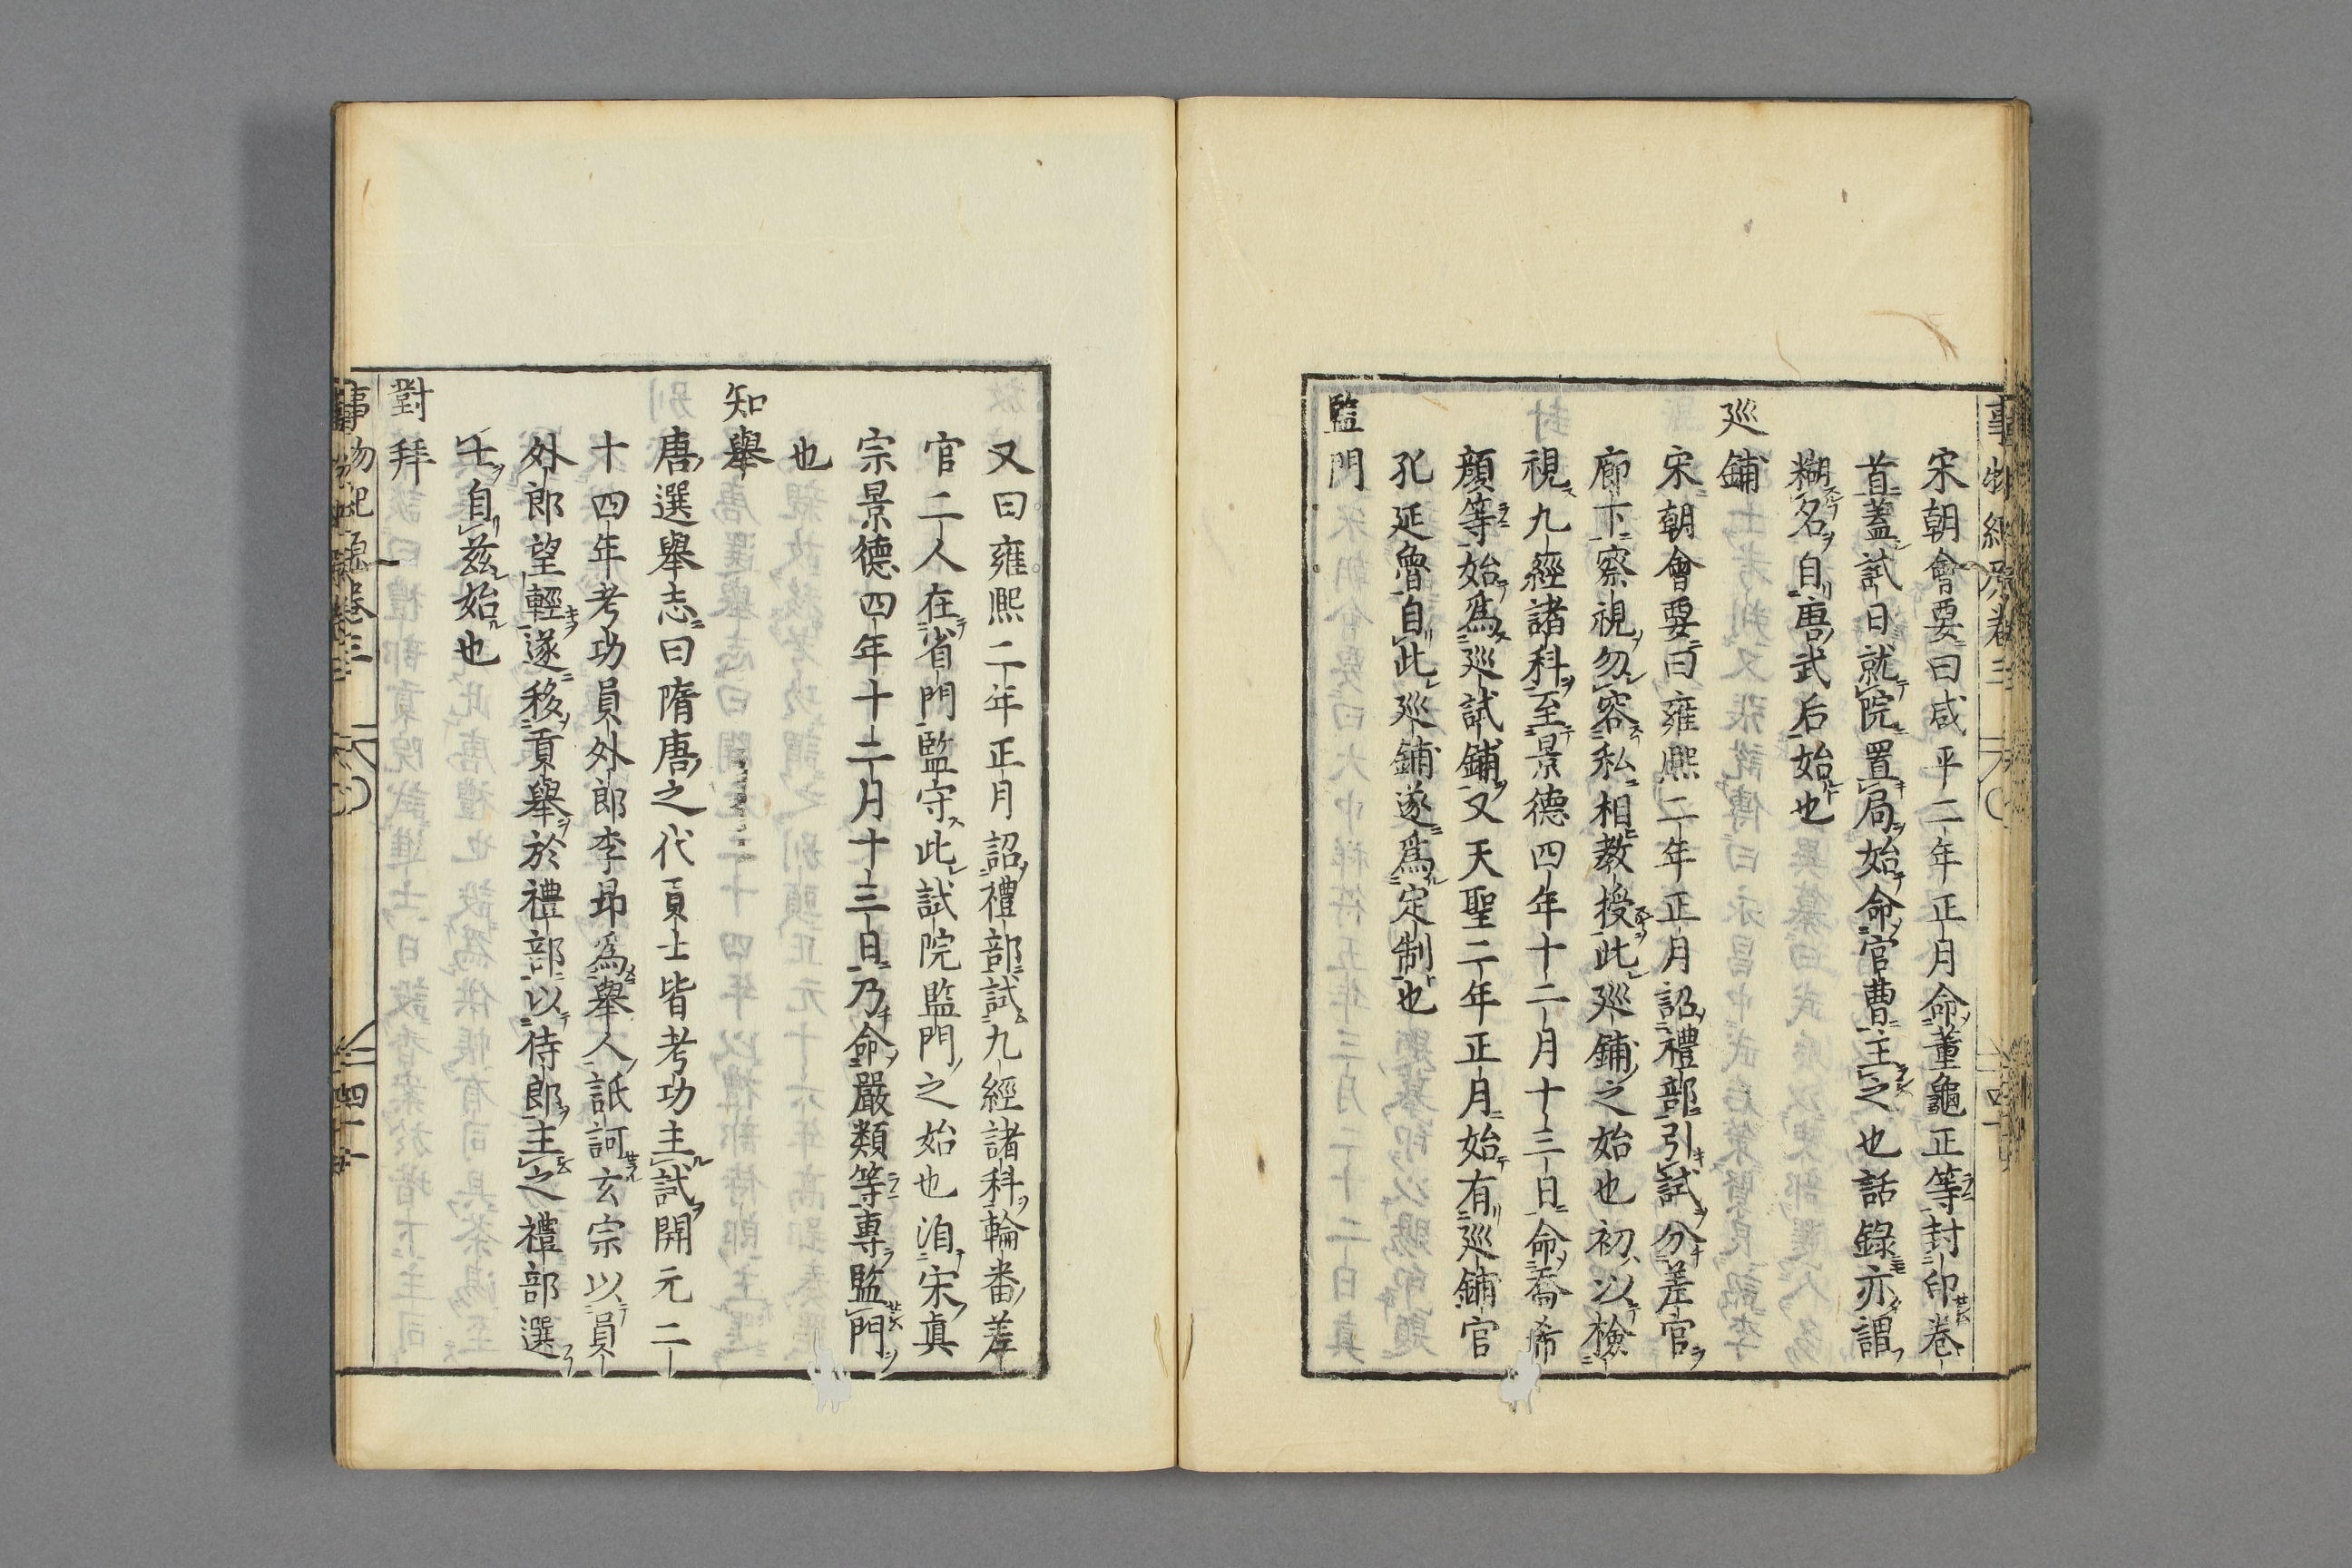 宋朝會要曰咸平二年正月命董龜正等封印卷
首蓋試日就院置局始命官曹主之也話錄亦謂
糊名自唐武后始也
巡鋪
宋朝會要曰雍熙二年正月詔禮部引試分差官
廊下察視勿容私相教授此巡鋪之始也初以檢
視九經諸科至景德四年十二月十三日命喬希
顏等始爲巡試鋪又天聖二年正月始有巡鋪官
孔延魯自此巡鋪遂爲定制也
監門
又曰雍熙二年正月詔禮部試九經諸科輪番差
官二人在省門監守此試院監門之始也洎宋真
宗景德四年十二月十三日乃命嚴類等專監門
也
知舉
唐選舉志曰隋唐之代貢士皆考功主試開元二
十四年考功員外郎李昻爲舉人詆訶玄宗以員
外郎望輕遂移貢舉於禮部以侍郎主之禮部選
士自茲始也
對拜